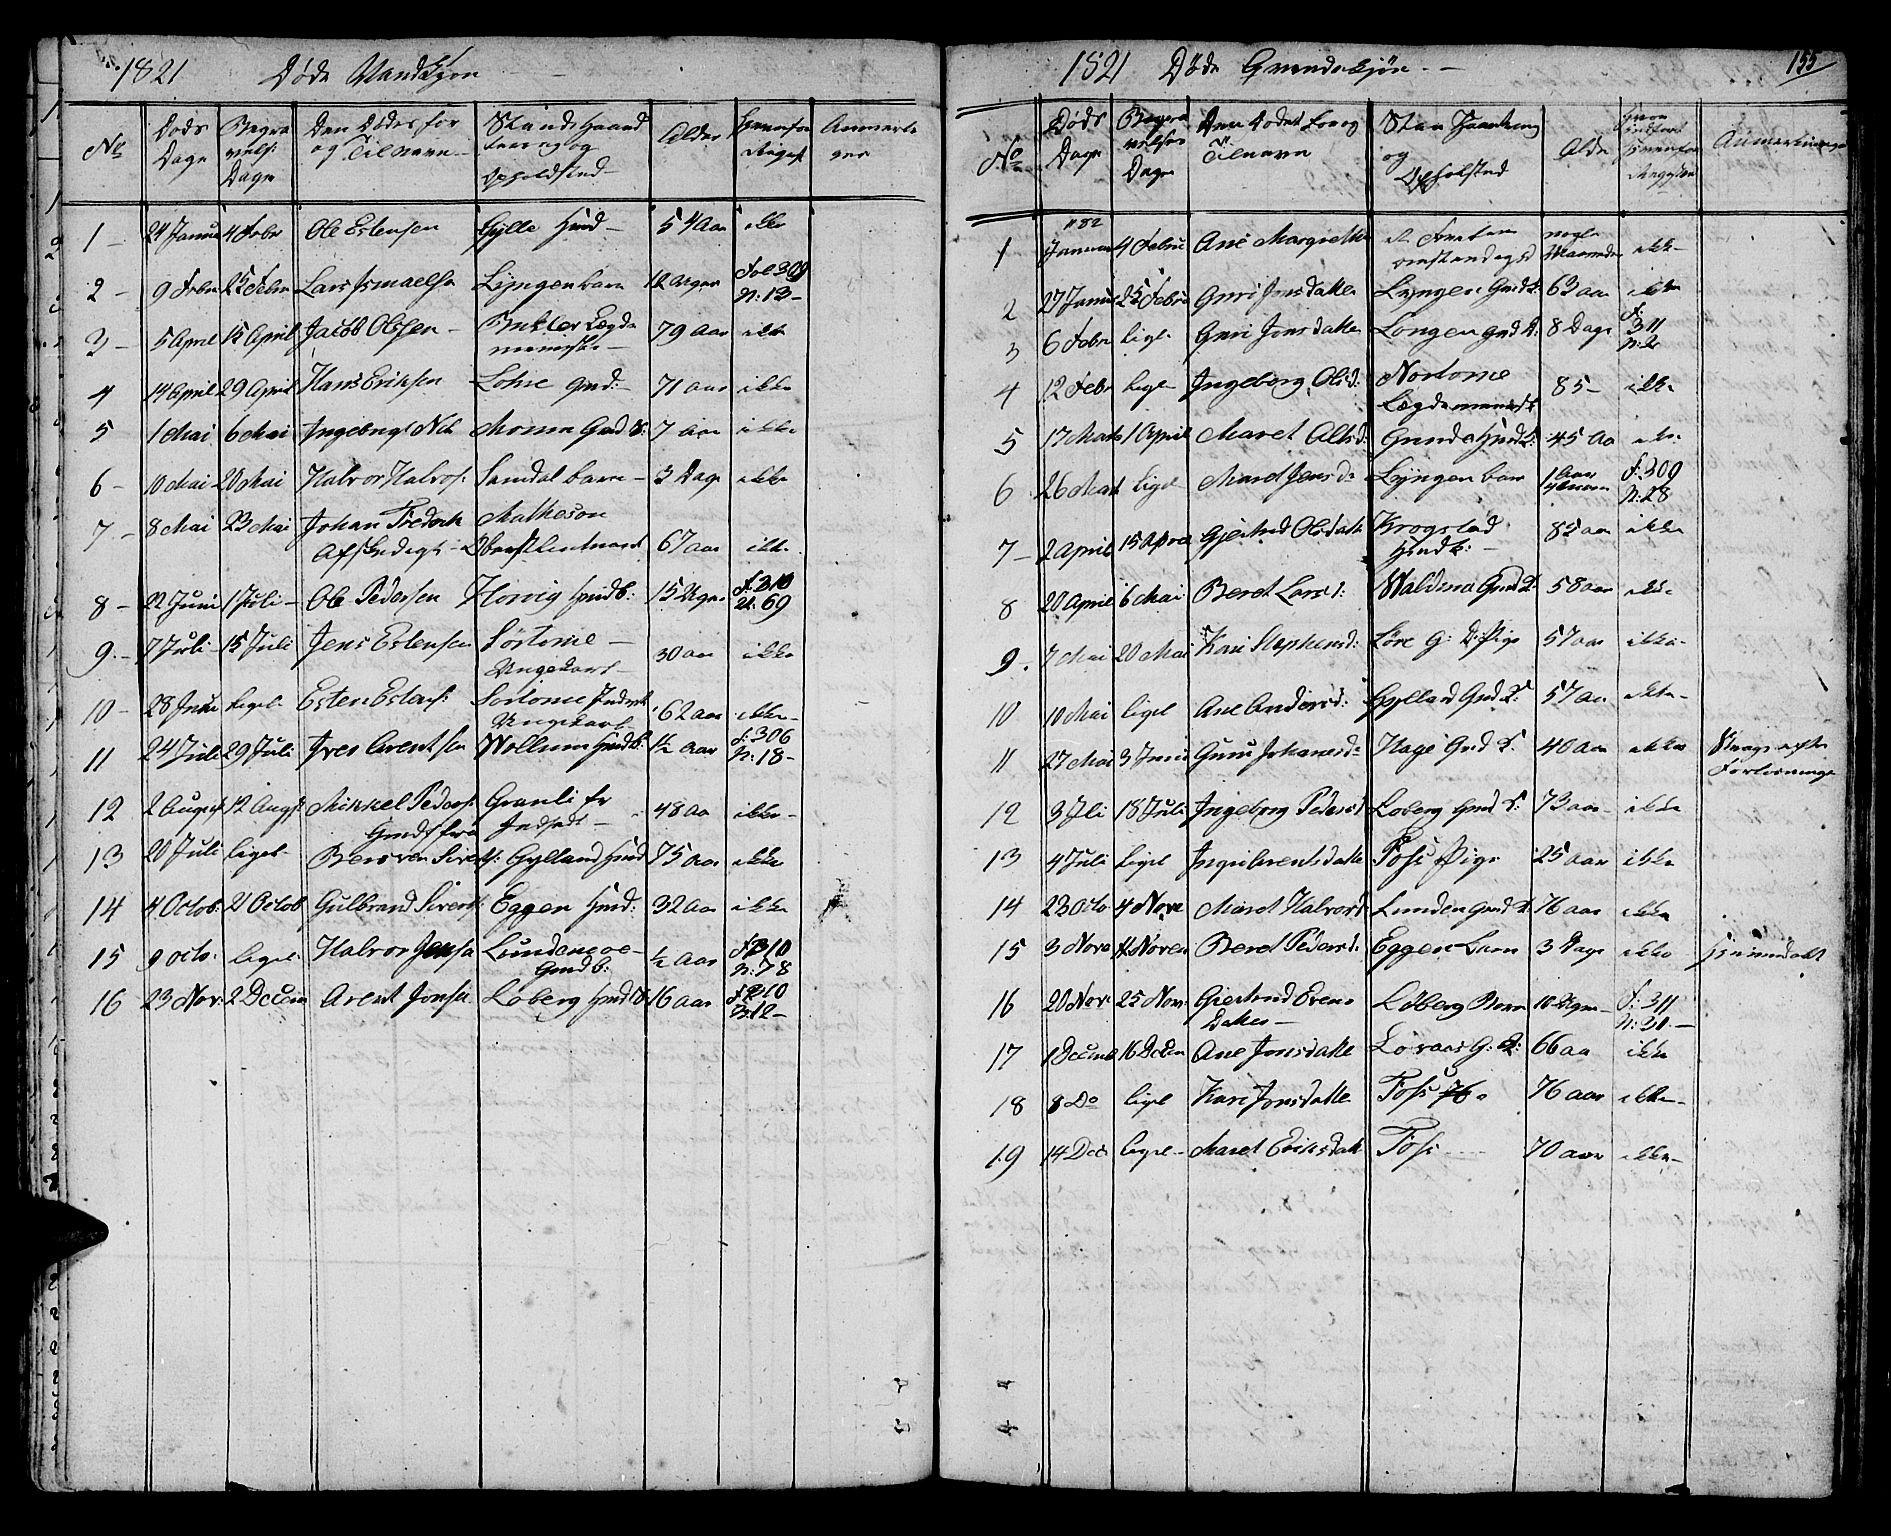 1821 Døde Mandkjøn
No
Døds Dage
Begravels: Dage
Den Dødes for og Tilnavn
Stand Haand og Opholdsted
Alder
Anmerk
1 24 Janua 4 Febr Ole Estensen Gylle Hmd 54 Aar ikke
2 9 Febr 25 Febr Lars Ismaelsen Lyngen barn 12 Uger Fol 309 N: 13
3 5 April 15 April Jacob Olssen Lægdemenneske 79 aar ikke
4 14 April 29 April Hans Eriksen Lohre Gmd: 71 aar ikke
5 1 Mai 6 Mai Ingebrigt Nil Moum Gmd B: 7 aar ikke
6 10 Mai 20 Mai Halvor Halvors: Sandal barn 3 Dage ikke
7 8 Mai 23 Mai Johan Frederik Matheson
Afskediget Oberstleutnant 67 aar ikke
8 22 Juni 1 Juli Ole Pedersen Horvig Hmdb: 15 Uger F: 310 N: 69
9 7 Juli 15 Juli Jens Estensen Sørtome Ungekarl 30 aar ikke
10 28 Juni ligel Esten Estens: Sortome Ungekarl 62 aar ikke
11 24 Juli 29 Juli Iver Arentsen Wollum Hmdb: ½ aar F: 306 N: 18
12 2 August 12 Augst Mikkel Peders: Granli fr Indset 48 aa ikke
13 20 Juli ligel Bersven Sivers: Gylland Hmd 75 aar ikke
14 4 Octob: 21 Octob Gulbrand Sivers: Eggen Hmd: 32 aar ikke
15 9 octo: ligel Halvor Jensen Lundamoe Gmdb: ½ aar F 310 N: 78
16 23 Nov: 2 Decem Arent Jonsen Loberg Hmd B 16 aar F 210 N: 12

1821 Døde Qvindekjøn
155
No
Døds Dage
Begravelses Dage
Den Dødes For og Tilnavn
Stan Haantering og Opholsted
Alde
Anmerkninger
1 Januar 4 Febru Ane Margrethe omstendigst nogle Maaneder ikke
2 27 Janua 25 Febru Guri Jonsdatter Lyngen Gmd K: 63 aar ikke
3 6 Febr ligel Guri Jonsdatter Longen Gmd D: 8 Dage F: 311 N: 2
4 12 Febr ligel Ingeborg Olsd: Nortome Lægdemennesk 85 ikke
5 17 Marts 1 April Maret Olsd: 45 aa ikke
6 26 Marts ligel Maret Jensd: Lyngen barn 1 Aar F: 309 N: 28
7 2 April 15 April Gjertrud Olsdatter Krogstad Hmdk: 85 aar ikke
8 20 April 6 Mai Beret Larsd: Waldma Gmd K 58 aar ikke
9 7 Mai 20 Mai Kari Stephensd: Løre G: D: Pige 57 aar ikke
10 10 Mai ligel Ane Andersd: Gylland Gmd K 57 aar ikke
11 27 Mai 3 Juni Guru Johansd: Hage Gmd K. 40 aar ikke Strags efter Forløsninge
12 3 Juli 18 Juli Ingeborg Pedersd: Loberg Hmd K: 73 aar ikke
13 4 Juli ligel Ingri Arentsdatter Foss Pige 25 aar ikke
14 23 Octo 4 Nove Maret Halvord: Lunden Gmd K: 76 aar ikke
15 3 Nove 4 Noven Beret Pedersd: Eggen barn 3 Dage ikke Hiemmdøbt
16 20 Nov: 25 Nov: Giertrud Evensdatter Løberg Barn 10 Uger F: 311 N: 31
17 1 Decemb 16 Decem Ane Jonsdatter Loraas G: K: 66 aa ikke
18 8 Do ligel Kari Jonsdatter Foss 76 aar ikke
19 14 Dec: ligel Maret Eriksdatt Foss 70 aar ikke